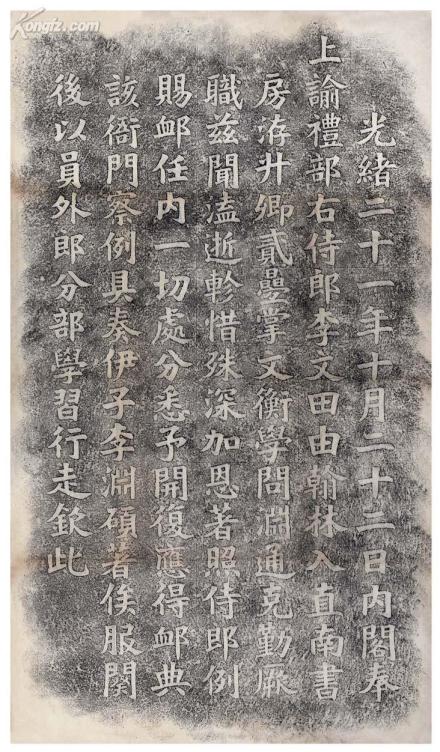 光緒二十一年十月二十二日內閣奉
上諭禮部右侍郎李文田由翰林入直南書
房洊升卿貳曡掌文衡學問淵通克勤厥
職茲聞溘逝軫惜殊深加恩著照侍郎例
賜卹任內一切處分悉予開復應得卹典
該衙門察例具奏伊子李淵碩著俟服闋
後以員外郎分部學習行走欽此
Kongfz.com